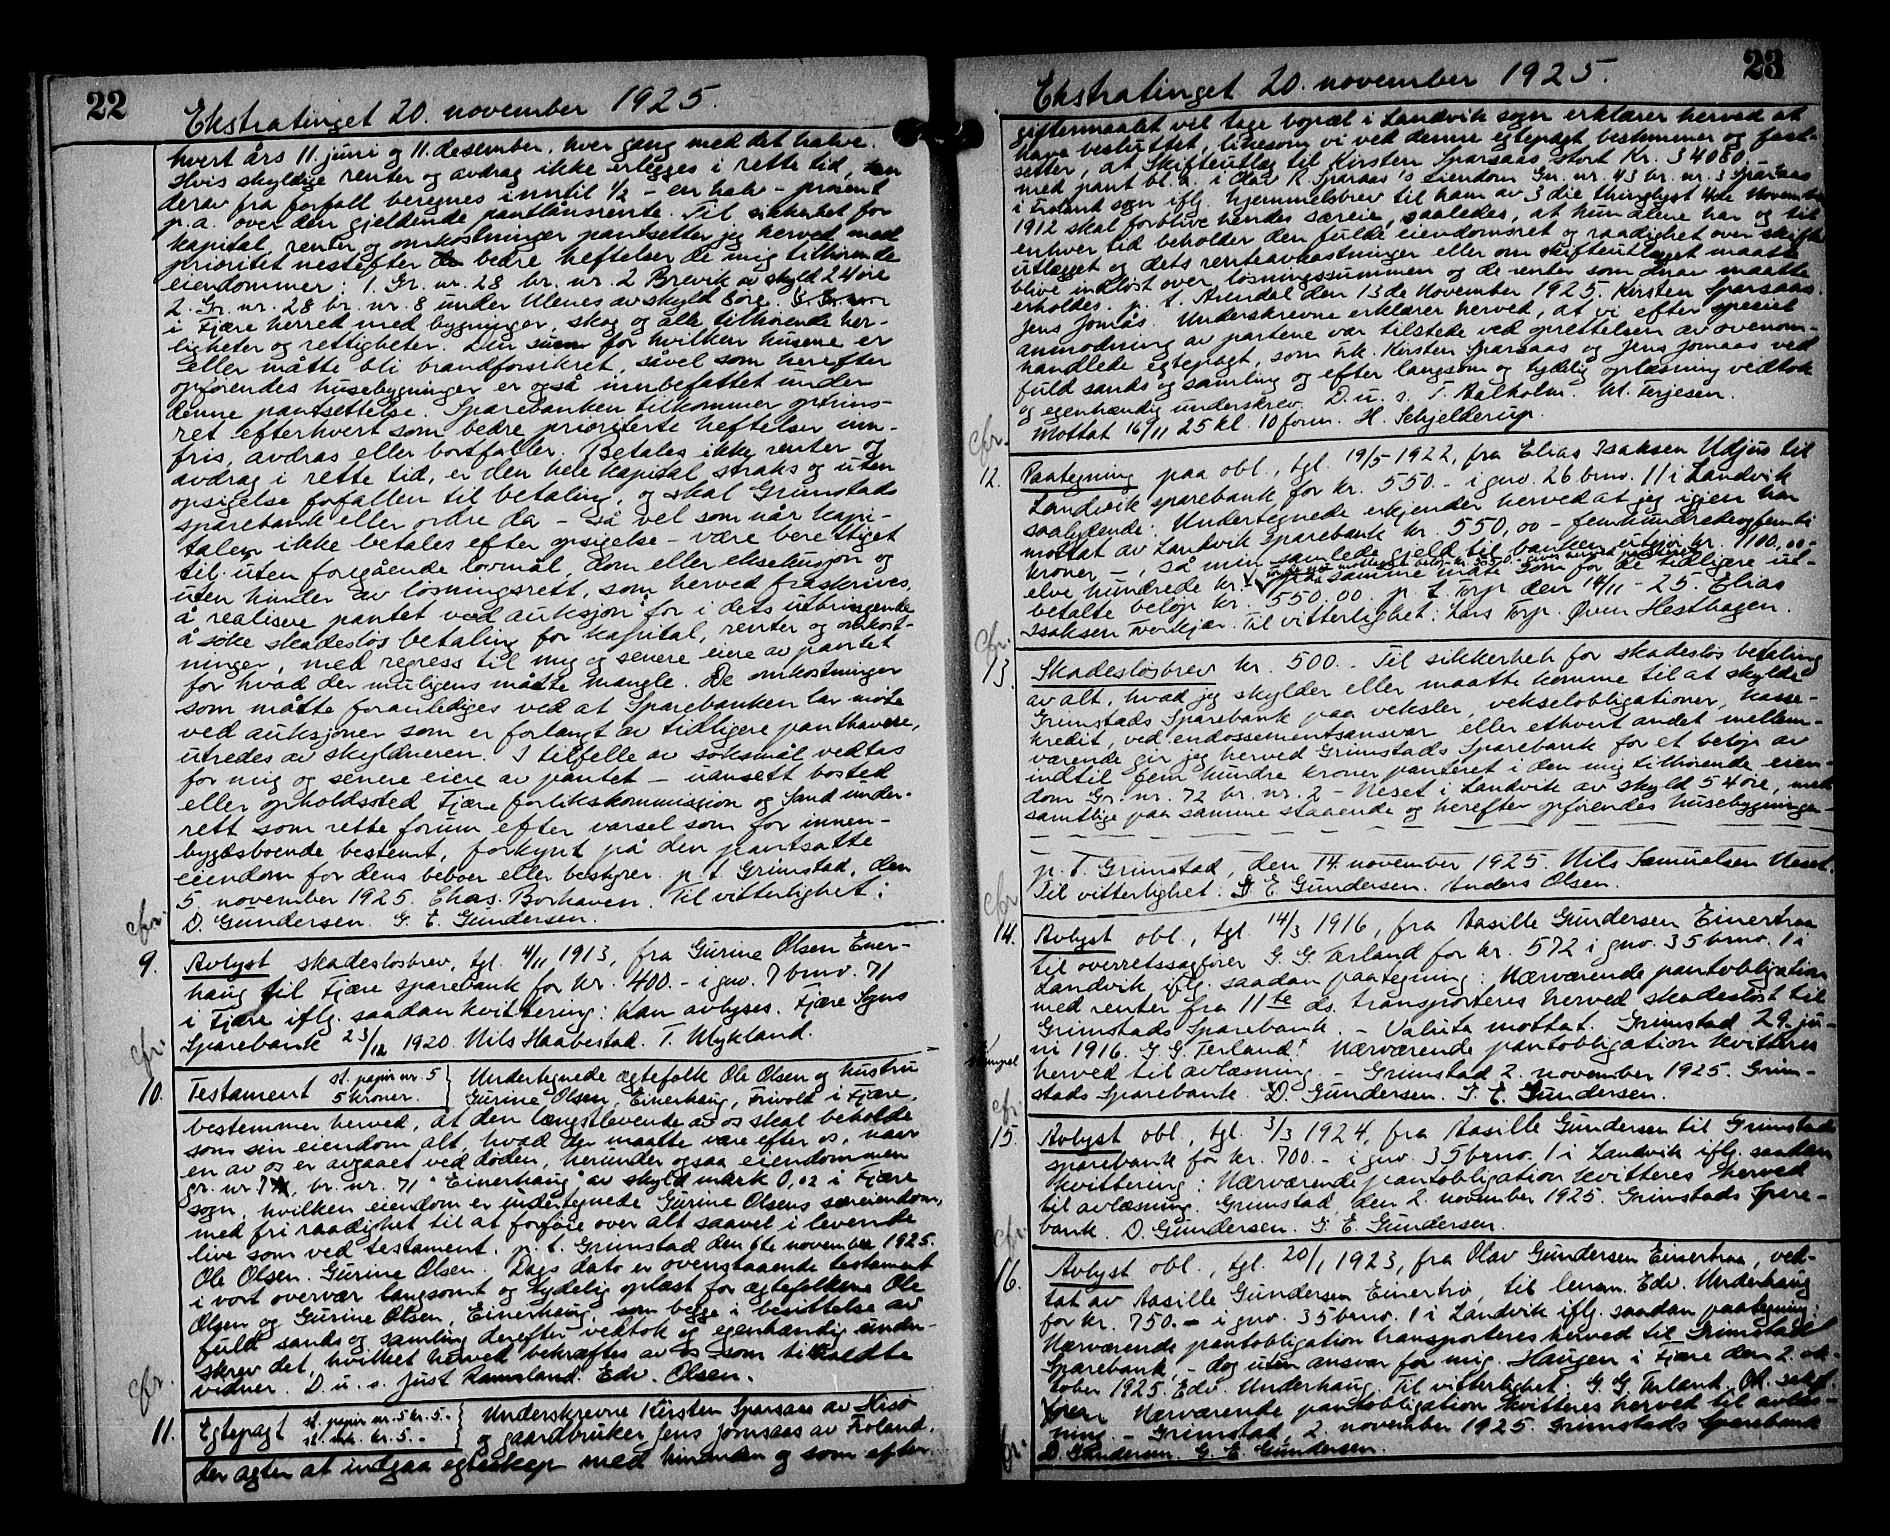 22
Ekstratinget 20. november 1925.
hvert års 11. juni og 11. desember, hver gang med det halve.
Hvis skyldige renter og avdrag ikke erlegges i rette tid, kan
derav fra forfall beregnes inntil 1/2 - en halv - prosent
p.a. over den gjeldende pantlånsrente. Til sikkerhet for
kapital, renter og omkostninger pantsetter jeg herved med
prioritet nestefter bedre heftelser de mig tilhørende
eiendommer: 1. Gr. nr. 28 br. nr. 2 Brevik av skyld 24 øre
2. Gr. nr. 28 br. nr. 8 under Ulenes av skyld 8 øre.
i Fjære herred med bygninger, skog og alle tilhørende her-
ligheter og rettigheter. Den sum for hvilken husene er
eller måtte bli brandforsikret, såvel som herefter
opførendes husebygninger er også innbefattet under
denne pantsettelse. Sparebanken tilkommer optrins-
ret efterhvert som bedre prioriterte heftelser inn-
fris, avdras eller bortfaller. Betales ikke renter og
avdrag i rette tid, er den hele kapital straks og uten
opsigelse forfallen til betaling, og skal Grimstads
sparebank eller ordre da - så vel som når kapi-
talen ikke betales efter opsigelse - være berettiget
til uten foregående lovmål, dom eller eksekusjon og
uten hinder av løsningsrett, som herved fraskrives,
å realisere pantet ved auksjon for i dets utbringende
å søke skadesløs betaling for kapital, renter og omkost-
ninger, med regress til mig og senere eiere av pantet
for hvad der muligens måtte mangle. De omkostninger
som måtte foranlediges ved at Sparebanken lar møte
ved auksjoner som er forlangt av tidligere panthavere,
utredes av skyldneren. I tilfelle av søksmål vedtas
for mig og senere eiere av pantet - uansett bosted
eller opholdssted Fjære forlikskommission og Sand under-
rett som rette forum efter varsel som for innen-
bygdsboende bestemt, forkynt på den pantsatte
eiendom for dens beboer eller bestyrer. p. t. Grimstad, den
5. november 1925. Chas. Borhaven. Til vitterlighet:
D. Gundersen. G. E. Gundersen.
cfr.
9. Avlyst skadesløsbrev, tgl. 4/11 1913, fra Gurine Olsen Ener-
haug til Fjære sparebank for kr. 400.- i gnr. 7 brnr. 71
i Fjære iflg. saadan kvittering: Kan avlyses. Fjære Sogns
Sparebank 23/12 1920. Nils Haabestad. T. Mykland.
cfr.
10. Testament st. papir nr. 5 5 kroner. Undertegnede ægtefolk Ole Olsen og hustru
Gurine Olsen, Einerhaug, Frivold i Fjære,
bestemmer herved, at den længstlevende av os skal beholde
som sin eiendom alt, hvad der maatte være efter os, naar
en av os er avgaaet ved døden, herunder ogsaa eiendommen
gr. nr. 7, br. nr. 71 "Einerhaug" av skyld mark 0,02 i Fjære
sogn, hvilken eiendom er undertegnede Gurine Olsens særeiendom,
med fri raadighet til at forføie over alt saavel i levende
live som ved testament. p. t. Grimstad den 6te november 1925.
Ole Olsen. Gurine Olsen. Dags dato er ovenstaaende testament
i vort overvær langsomt og tydelig oplæst for ægtefolkene Ole
Olsen og Gurine Olsen, Einerhaug, som begge i besittelse av
fuld sands og samling derefter vedtok og egenhændig under-
skrev det, hvilket herved bekræftes av os som tilkaldte
vidner. D. u. s. Just Ramsland. Edv. Olsen.
cfr.
11. Egtepagt st. papir nr. 5 kr. 5.- kr. 5.- Underskrevne Kirsten Sparsaas av Hisø
og gaardbruker Jens Jomaas av Froland,
der agter at indgaa egteskap med hinanden og som efter
23
Ekstratinget 20. november 1925.
giftermaalet vil tage bopæl i Landvik sogn erklærer herved at
have besluttet, likesom vi ved denne egtepagt bestemmer og fast-
setter, at Skifteutlæg til Kirsten Sparsaas stort Kr. 34080.-
med pant bl. a. i Olav K. Sparsaas's Eiendom Gr. nr. 43 br. nr. 3 Sparsaas
i Froland sogn iflg. hjemmelsbrev til ham av 3die thinglyst 4de November
1912 skal forblive hendes særeie, saaledes, at hun alene har og til
enhver tid beholder den fulde eiendomsret og raadighet over skifte-
utlægget og dets renteavkastninger eller om skifteutlægget maatte
blive indløst over løsningssummen og de renter som derav maatte
erholdes. p. t. Arendal den 13de November 1925. Kirsten Sparsaas.
Jens Jomås. Underskrevne erklærer herved, at vi efter speciel
anmodning av partene var tilstede ved oprettelsen av ovenom-
handlede egtepagt, som frk. Kirsten Sparsaas og Jens Jomaas ved
fuld sands og samling og efter langsom og tydelig oplæsning vedtok
og egenhændig underskrev. D. u. s. T. Aalholm. M. Terjesen.
Mottat 16/11 25 kl. 10 form. H. Schjelderup.
cfr.
12. Paategning paa obl., tgl. 19/5 1922, fra Elias Isaksen Udjus til
Landvik sparebank for kr. 550.- i gnr. 26 brnr. 11 i Landvik
saalydende: Undertegnede erkjender herved at jeg igjen har
mottat av Landvik sparebank kr. 550,00 - femhundredeogfemti
kroner -, så min samlede gjeld til banken utgjør kr. 1100.00 -
elve hundrede kr. samme måte som for de tidligere ut-
betalte beløp kr. 550.00. p. t. Torp den 14/11 - 25. Elias
Isaksen Tverkjær. Til vitterlighet: Lars Torp. Øven Hesthagen.
cfr.
13. Skadesløsbrev kr. 500.- Til sikkerhet for skadesløs betaling
av alt, hvad jeg skylder eller maatte komme til at skylde
Grimstads Sparebank paa veksler, vekselobligationer, kasse-
kredit, ved endossementsansvar eller ethvert andet mellem-
værende gir jeg herved Grimstads Sparebank for et beløp av
indtil fem hundre kroner panteret i den mig tilhørende eien-
dom Gr. nr. 72 br. nr. 2 - Neset i Landvik av skyld 54 øre, med
samtlige paa samme staaende og herefter opførendes husebygninger -
p. t. Grimstad, den 14. november 1925. Nils Samuelsen Neset.
Til vitterlighet: G. E. Gundersen. Anders Olsen.
cfr.
14. Avlyst obl., tgl. 14/3 1916, fra Aasille Gundersen Einertraa
til overretssagfører G. G. Terland for kr. 572 i gnr. 35 brnr. 1 i
Landvik iflg. saadan paategning: Nærværende pantobligation
med renter fra 11te ds. transporteres herved skadesløst til
Grimstads Sparebank. - Valuta mottat. Grimstad 29. ju-
ni 1916. G. G. Terland. Nærværende pantobligation kvitteres
Stempel
herved til avlæsning. - Grimstad 2. november 1925. Grim-
stads Sparebank. D. Gundersen. G. E. Gundersen.
cfr.
15. Avlyst obl., tgl. 3/3 1924, fra Aasille Gundersen til Grimstads
sparebank for kr. 700.- i gnr. 35 brnr. 1 i Landvik iflg. saadan
kvittering: Nærværende pantobligation kvitteres herved
til avlæsning. Grimstad, den 2. november 1925. Grimstads Spare-
bank. D. Gundersen. G. E. Gundersen.
cfr.
16. Avlyst obl., tgl. 20/1 1923, fra Olav Gundersen Einertraa, ved-
tat av Aasille Gundersen Einertrø, til lensm. Edv. Underhaug
for kr. 750.- i gnr. 35 brnr. 1 i Landvik iflg. saadan paategning:
Nærværende pantobligation transporteres herved til Grimstads
Sparebank, - dog uten ansvar for mig. Haugen i Fjære den 2. ok-
tober 1925. Edv. Underhaug. Til vitterlighet: G. G. Terland, O.r. sakf.
Nærværende pantobligation kvitteres herved til avlæs-
ning. - Grimstad, 2. november 1925. Grimstads Sparebank
D. Gundersen. G. E. Gundersen.
cfr.